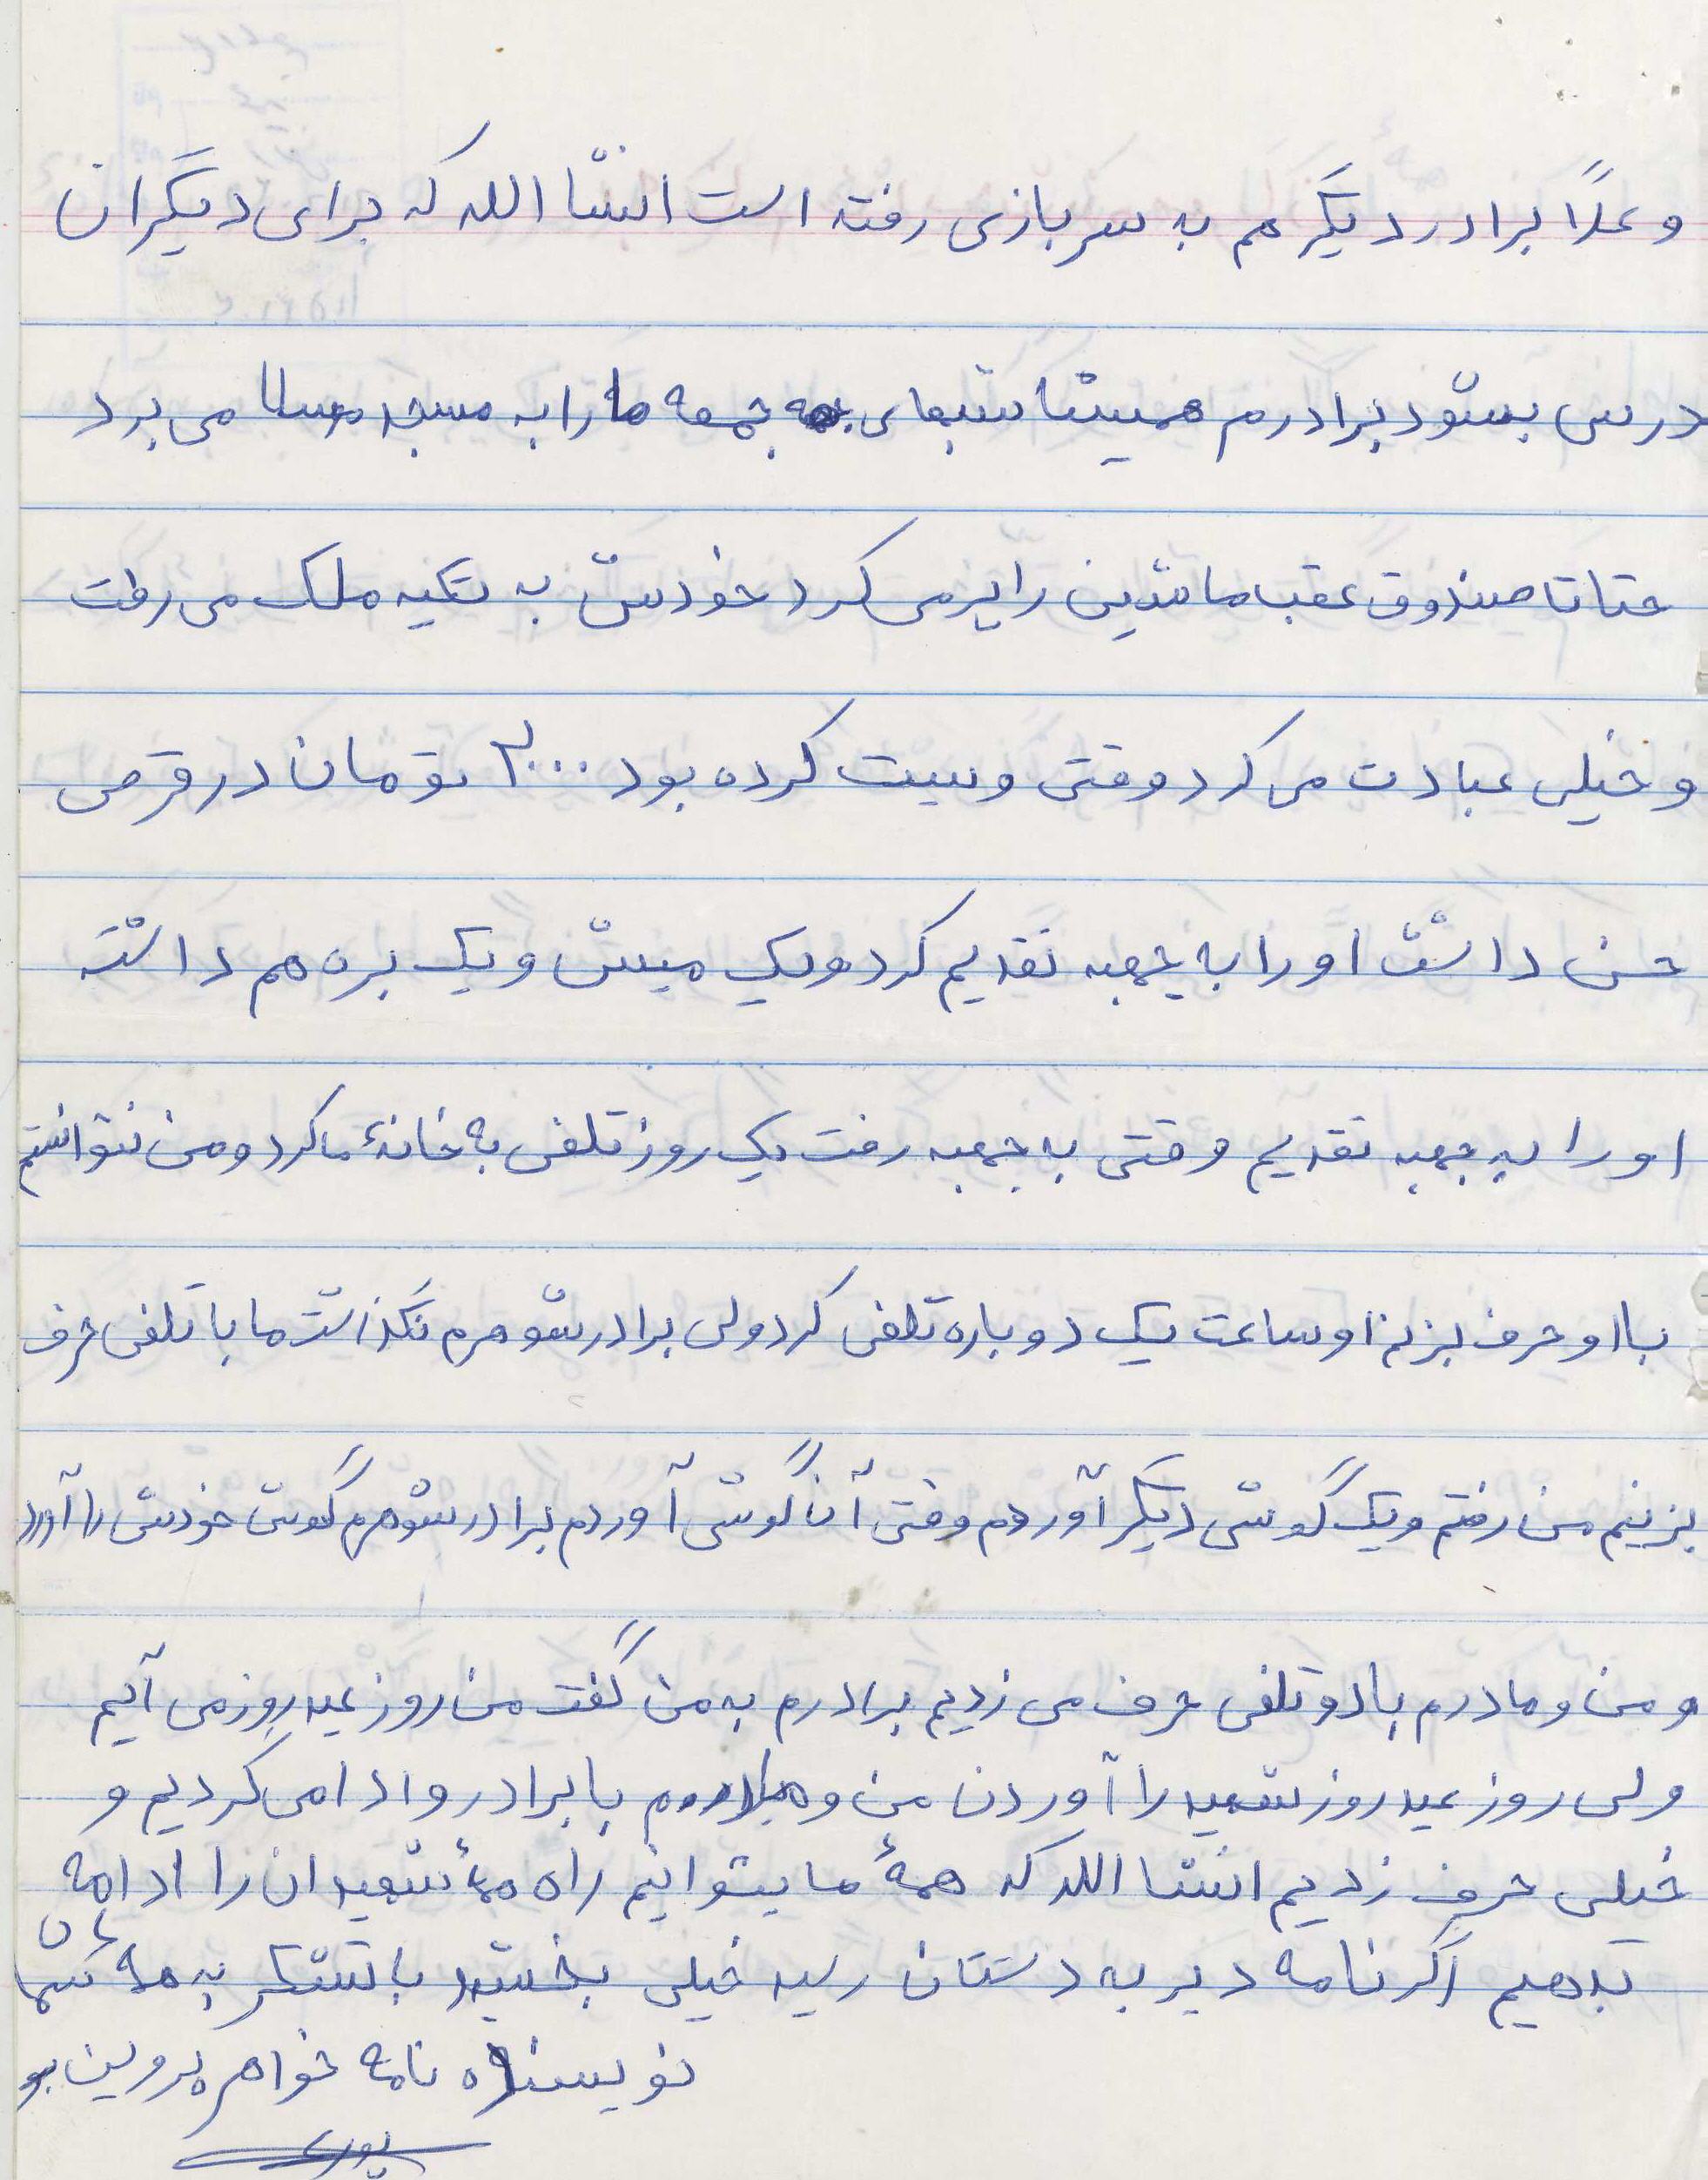 و عملاً برادر دیگر هم به سربازی رفته است انشا الله که برای دیگران
درس بشود برادرم همیشا شبهای جمعه ما را به مسجد مسلا می برد
حتا تا صندوق عقب ماشین را پر می کرد خودش به تکیه ملک می رفت
و خیلی عبادت می کرد وقتی وسیت کرده بود ۳۰۰۰ تومان در قرص
حسن داشت او را به جبهه تقدیم کرد و یک میش و یک بره هم داشته
او را به جبهه تقدیم وقتی به جبهه رفت یک روز تلفی به خانهٔ ما کرد و من نتوانستم
با او حرف بزنم او ساعت یک دوباره تلفی کرد ولی برادر شوهرم نگذاشت ما با تلفی حرف
بزنیم من رفتم و یک گوشی دیگر آوردم وقتی آن گوشی آوردم برادر شوهرم گوشی خودش را آورد
و من و مادرم با دو تلفی حرف می زدیم برادرم به من گفت من روز عید روز می آیم
ولی روز عید روز شهید را آوردن من و مادرم با برادر وادا می کردیم و
خیلی حرف زدیم انشا الله که همهٔ ما بتوانیم راه شهیدان را ادامه
بدهیم اگر نامه دیر به دستان رسید خیلی بخشید با تشکر به همه شما
نویسنده نامه خواهر پروین